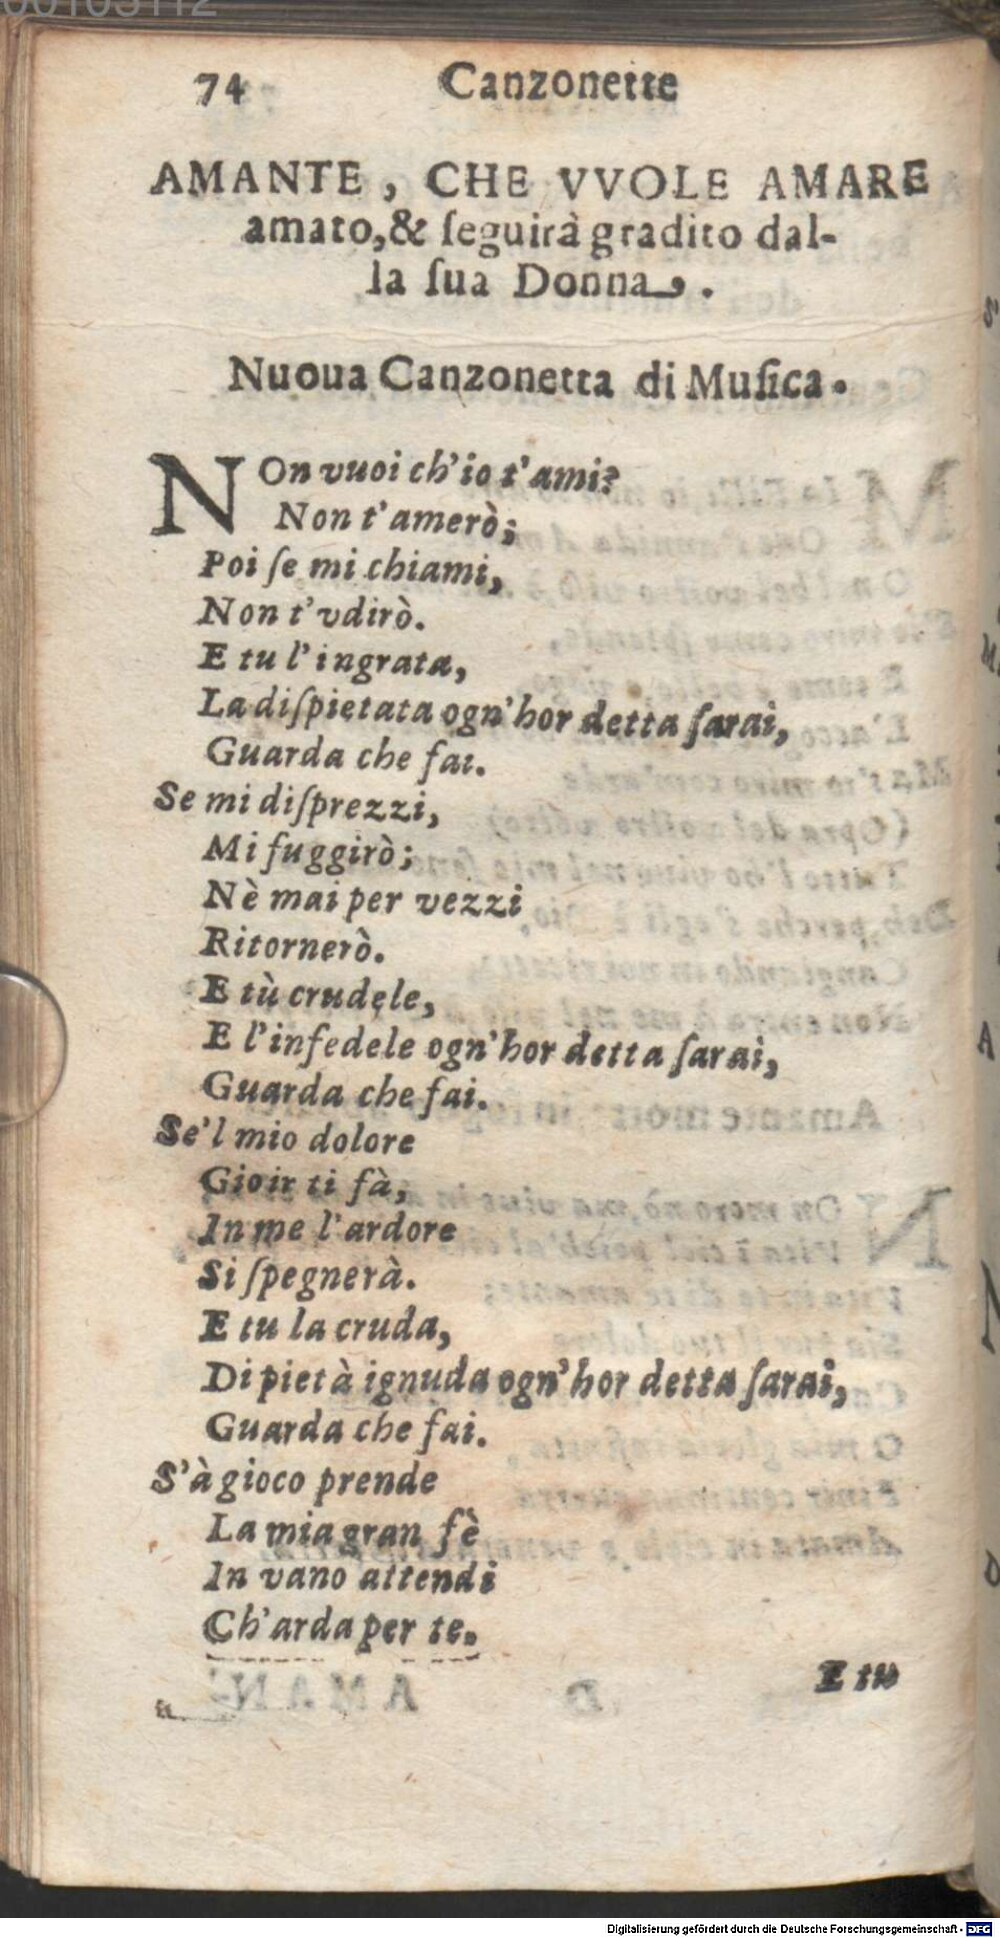 00103112
74 Canzonette
AMANTE, CHE VVOLE AMARE
amato,& ſeguirà gradito dal-
la ſua Donna.
Nuoua Canzonetta di Muſica.
NOn vuoi ch'io t'ami?
Non t'amerò;
Poi ſe mi chiami,
Non t'vdirò.
E tu l'ingrata,
La diſpietata ogn'hor detta ſarai,
Guarda che fai.
Se mi diſprezzi,
Mi fuggirò;
Nè mai per vezzi
Ritornerò.
E tù crudele,
E l'infedele ogn'hor detta ſarai,
Guarda che fai.
Se'l mio dolore
Gioir ti fà,
In me l'ardore
Si ſpegnerà.
E tu la cruda,
Di pietà ignuda ogn'hor detta ſarai,
Guarda che fai.
S'à gioco prende
La mia gran fè
In vano attendi
Ch'arda per te.
E tu
Digitalisierung gefördert durch die Deutsche Forschungsgemeinschaft - DFG